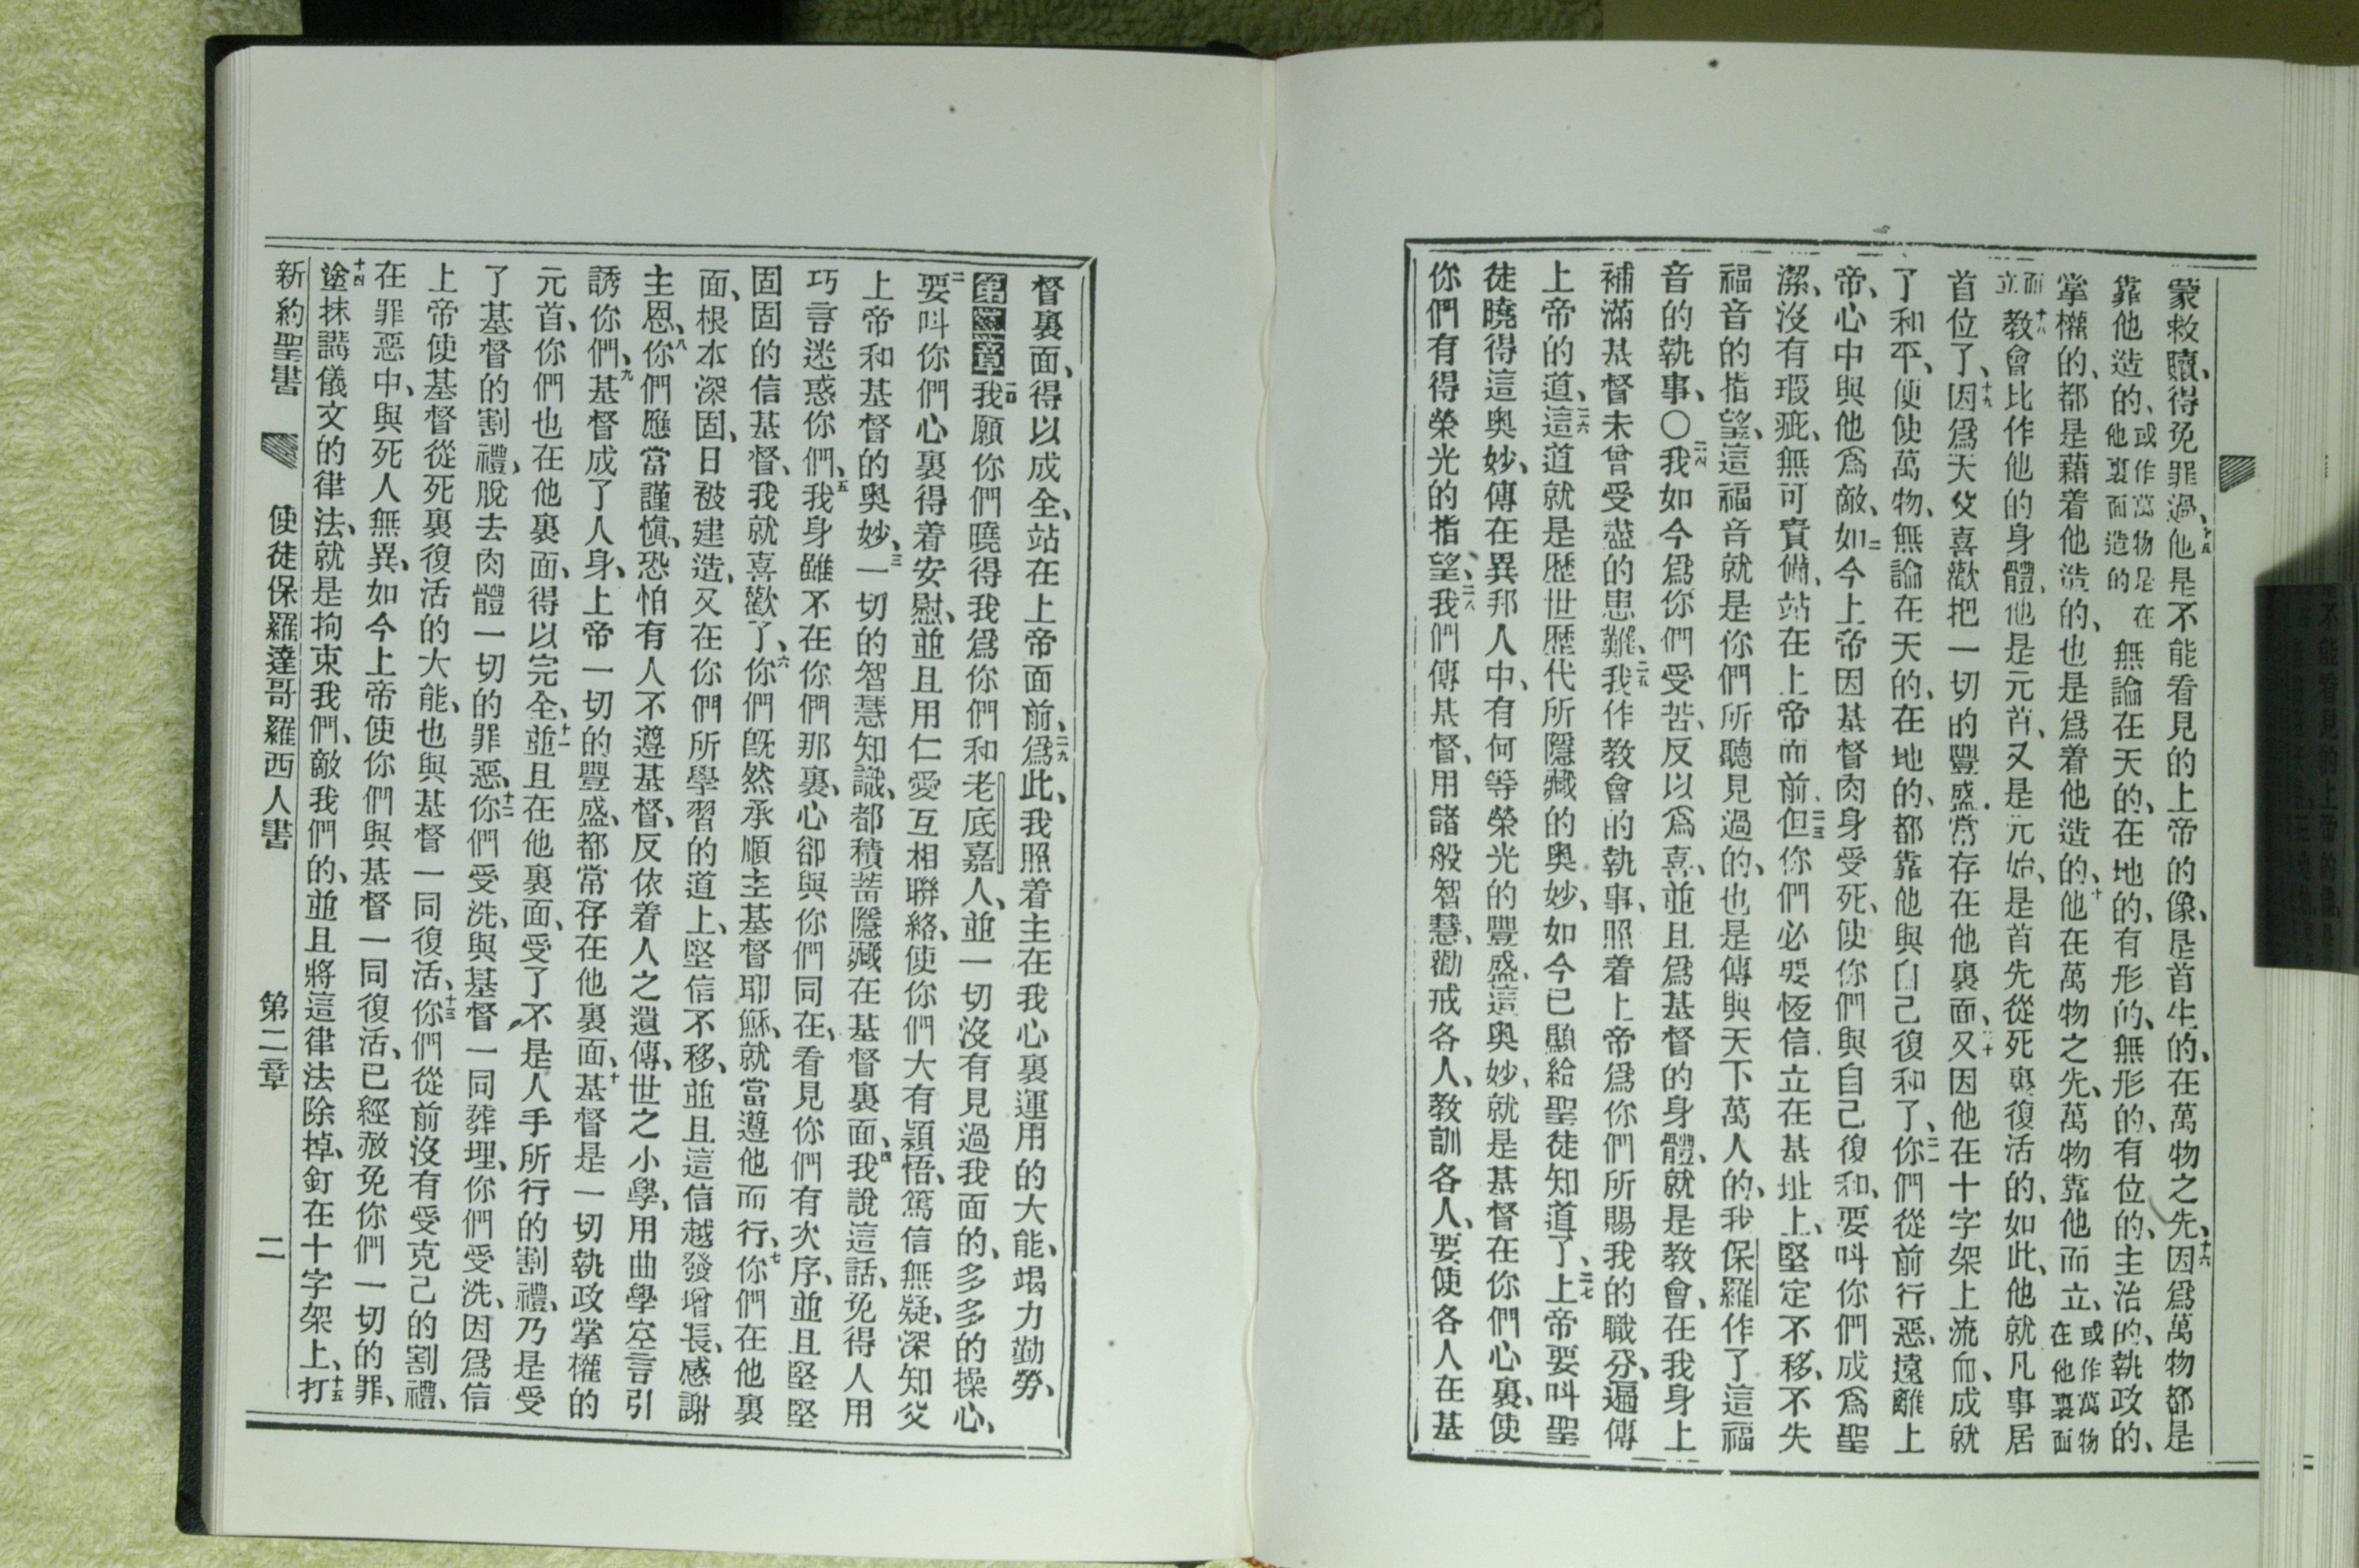 蒙救贖、得免罪過、十五他是不能看見的上帝的像、是首生的、在萬物之先、十六因爲萬物都是
靠他造的、或作萬物是在他裏面造的無論在天的、在地的、有形的、無形的、有位的、主治的、執政的、
掌權的、都是藉着他造的、也是爲着他造的、十七他在萬物之先、萬物靠他而立、或作萬物在他裏面
而立十八教會比作他的身體、他是元首、又是元始、是首先從死裏復活的、如此、他就凡事居
首位了、十九因爲天父喜歡把一切的豐盛、常存在他裏面、二十又因他在十字架上流血、成就
了和平、便使萬物、無論在天的、在地的、都靠他與自己復和了、二一你們從前行惡、遠離上
帝、心中與他爲敵、二二如今上帝因基督肉身受死、使你們與自己復和、要叫你們成爲聖
潔、沒有瑕疵、無可責備、站在上帝面前、二三但你們必要恆信立在基址上、堅定不移、不失
福音的指望、這福音就是你們所聽見過的、也是傳與天下萬人的、我保羅作了這福
音的執事、〇二四我如今爲你們受苦、反以爲喜、並且爲基督的身體、就是教會、在我身上
補滿基督未曾受盡的患難、二五我作教會的執事、照着上帝爲你們所賜我的職分、遍傳
上帝的道、二六這道就是歷世歷代所隱藏的奧妙、如今已顯給聖徒知道了、二七上帝要叫聖
徒曉得這奧妙、傳在異邦人中、有何等榮光的豐盛、這奧妙、就是基督在你們心裏、使
你們有得榮光的指望、二八我們傳基督、用諸般智慧、勸戒各人、教訓各人、要使各人在基
督裏面、得以成全、站在上帝面前、二九爲此、我照着主在我心裏運用的大能、竭力勤勞、
第二章一我願你們曉得我爲你們和老底嘉人、並一切沒有見過我面的、多多的操心、
二要叫你們心裏得着安慰、並且用仁愛互相聯絡、使你們大有穎悟、篤信無疑、深知父
上帝和基督的奧妙、三一切的智慧知識、都積蓄隱藏在基督裏面、四我說這話、免得人用
巧言迷惑你們、五我身雖不在你們那裏、心卻與你們同在、看見你們有次序、並且堅堅
固固的信基督、我就喜歡了、六你們旣然承順主基督耶穌、就當遵他而行、七你們在他裏
面、根本深固、日被建造、又在你們所學習的道上、堅信不移、並且這信越發增長、感謝
主恩、八你們應當謹愼、恐怕有人不遵基督、反依着人之遺傳、世之小學、用曲學空言引
誘你們、九基督成了人身、上帝一切的豐盛、都常存在他裏面、十基督是一切執政掌權的
元首、你們也在他裏面、得以完全、十一並且在他裏面、受了不是人手所行的割禮、乃是受
了基督的割禮、脫去肉體一切的罪惡、十二你們受洗、與基督一同葬埋、你們受洗、因爲信
上帝使基督從死裏復活的大能、也與基督一同復活、十三你們從前沒有受克己的割禮、
在罪惡中、與死人無異、如今上帝使你們與基督一同復活、已經赦免你們一切的罪、
十四塗抹講儀文的律法、就是拘束我們、敵我們的、並且將這律法除掉、釘在十字架上、十五打
新約聖書 使徒保羅達哥羅西人書 第二章 二